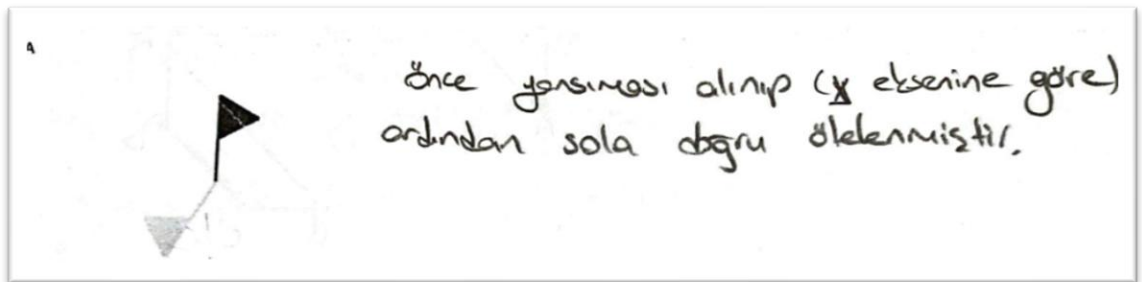 önce yansıması alınıp (x eksenine göre)
ardından sola doğru ötelenmiştir.